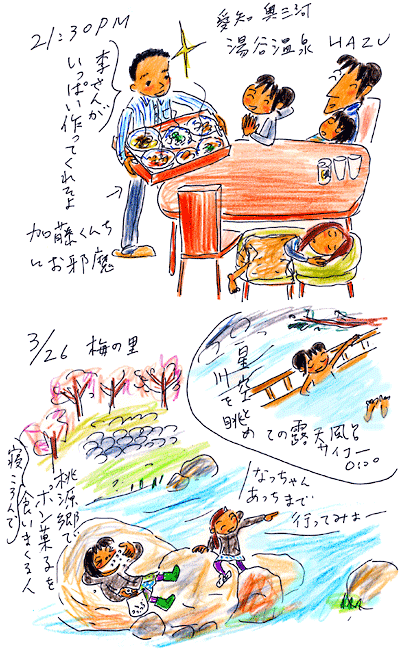 21:30PM
愛知 奥三河
湯谷温泉 HAZU
李さんが
いっぱい作ってくれたよ
加藤くんち
にお邪魔
3/26 梅の里
星空を
川
眺めての露天風呂
サイコー
なっちゃん
あっちまで
行ってみよー
桃源郷で
ポン菓子を
食いまくる人
寝ころんで